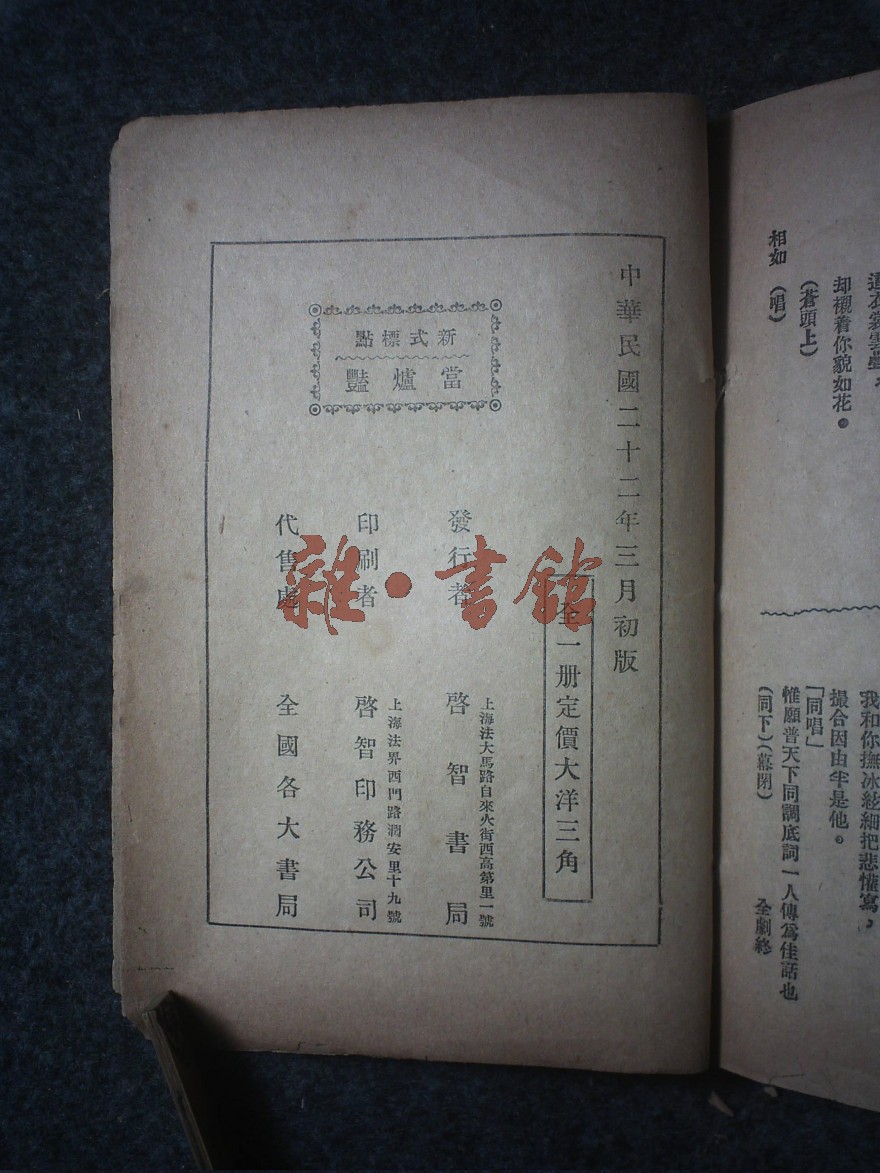 遺衣裳雲疊，
却襯着你貌如花。
（蒼頭上）
相如　（唱）
我和你撫冰絃細把悲懽寫，
撮合因由半是他。
「同唱」
惟願普天下同調底詞一人傳為佳話也
（同下）（幕閉）　　全劇終
中華民國二十二年三月初版
全一册定價大洋三角
新式標點
當爐豔
發行者　啓智書局
上海法大馬路自來火街西高第里一號
印刷者　啓智印務公司
上海法界西門路潤安里十九號
代售處　全國各大書局
雜·書館